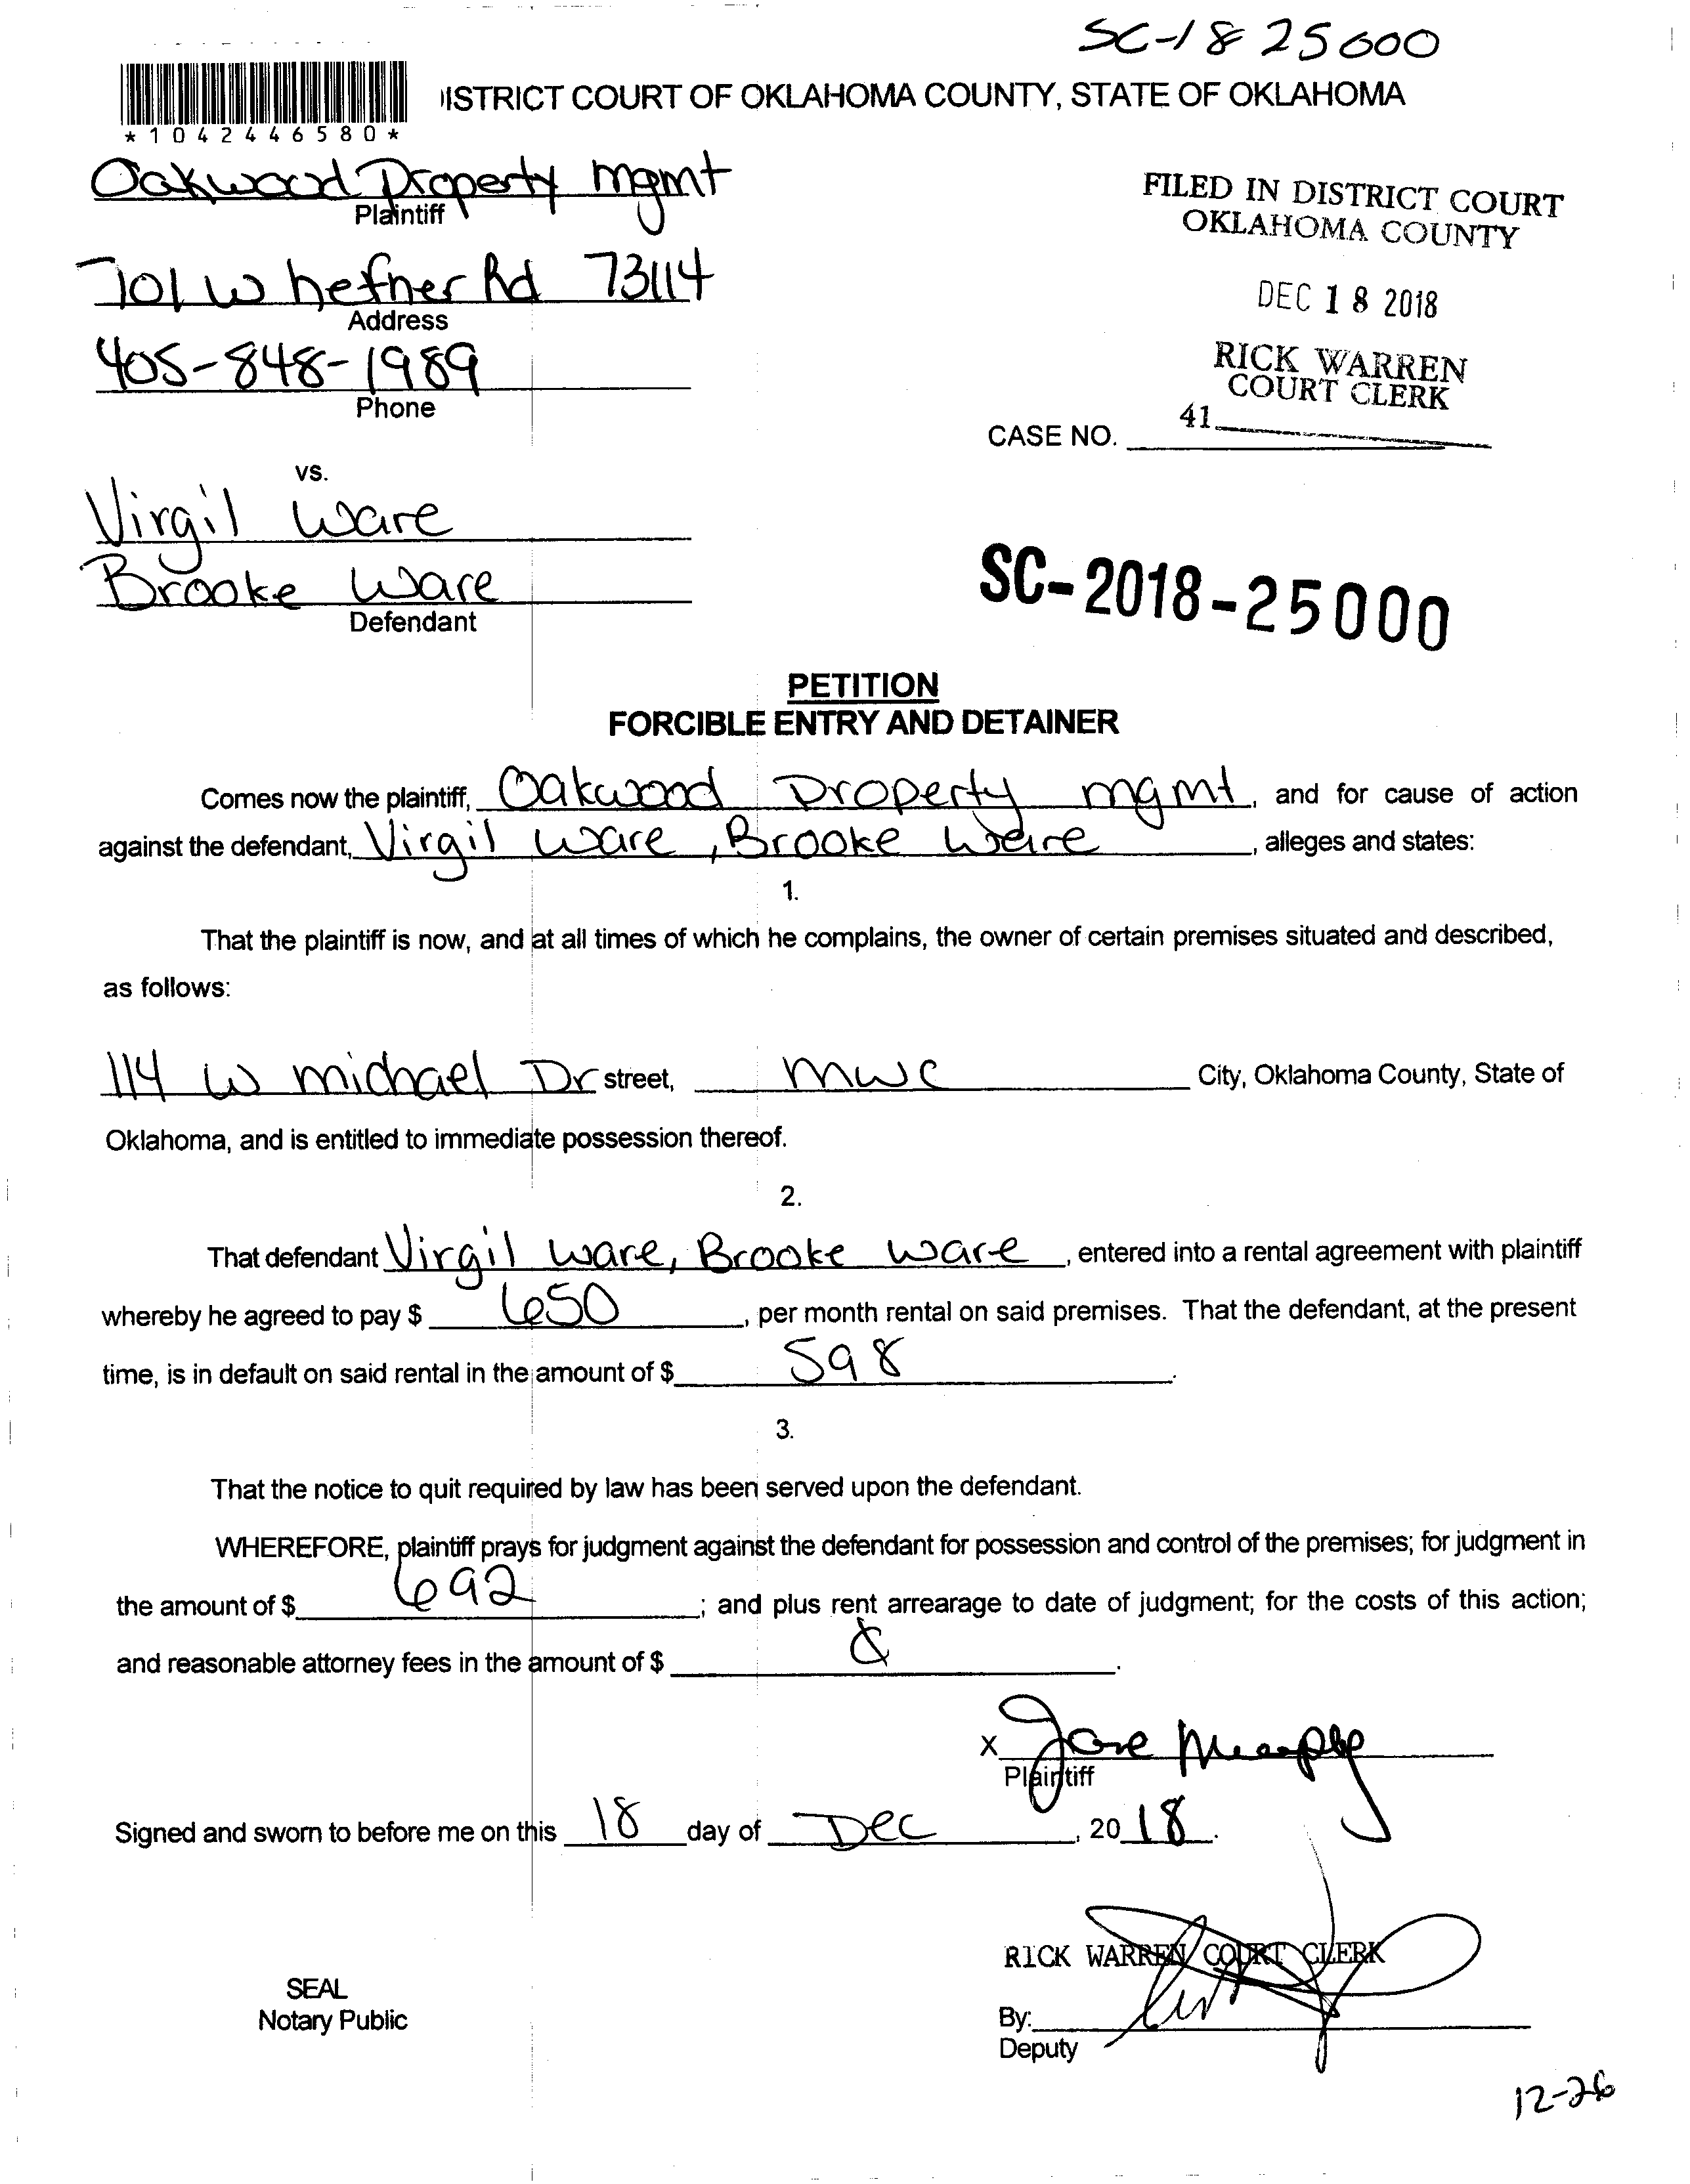 SC-18 25000
ISTRICT COURT OF OKLAHOMA COUNTY, STATE OF OKLAHOMA
*1042446580*
Oakwood Property mgmt
Plaintiff
FILED IN DISTRICT COURT
OKLAHOMA COUNTY
701 W hefner Rd 73114
Address
DEC 18 2018
405-848-1989
Phone
RICK WARREN
COURT CLERK
41
CASE NO.
vs.
Virgil Ware
Brooke Ware
Defendant
SC-2018-25000
PETITION
FORCIBLE ENTRY AND DETAINER
Comes now the plaintiff, Oakwood Property mgmt, and for cause of action
against the defendant, Virgil Ware, Brooke Ware, alleges and states:
1.
That the plaintiff is now, and at all times of which he complains, the owner of certain premises situated and described,
as follows:
114 W michael Dr street, mwc City, Oklahoma County, State of
Oklahoma, and is entitled to immediate possession thereof.
2.
That defendant Virgil Ware, Brooke Ware, entered into a rental agreement with plaintiff
whereby he agreed to pay $ 650, per month rental on said premises. That the defendant, at the present
time, is in default on said rental in the amount of $ 598.
3.
That the notice to quit required by law has been served upon the defendant.
WHEREFORE, plaintiff prays for judgment against the defendant for possession and control of the premises; for judgment in
the amount of $ 692; and plus rent arrearage to date of judgment; for the costs of this action;
and reasonable attorney fees in the amount of $ .
X Murphy
Plaintiff
Signed and sworn to before me on this 18 day of Dec, 2018.
RICK WARREN COURT CLERK
SEAL
Notary Public
By:
Deputy
12-26